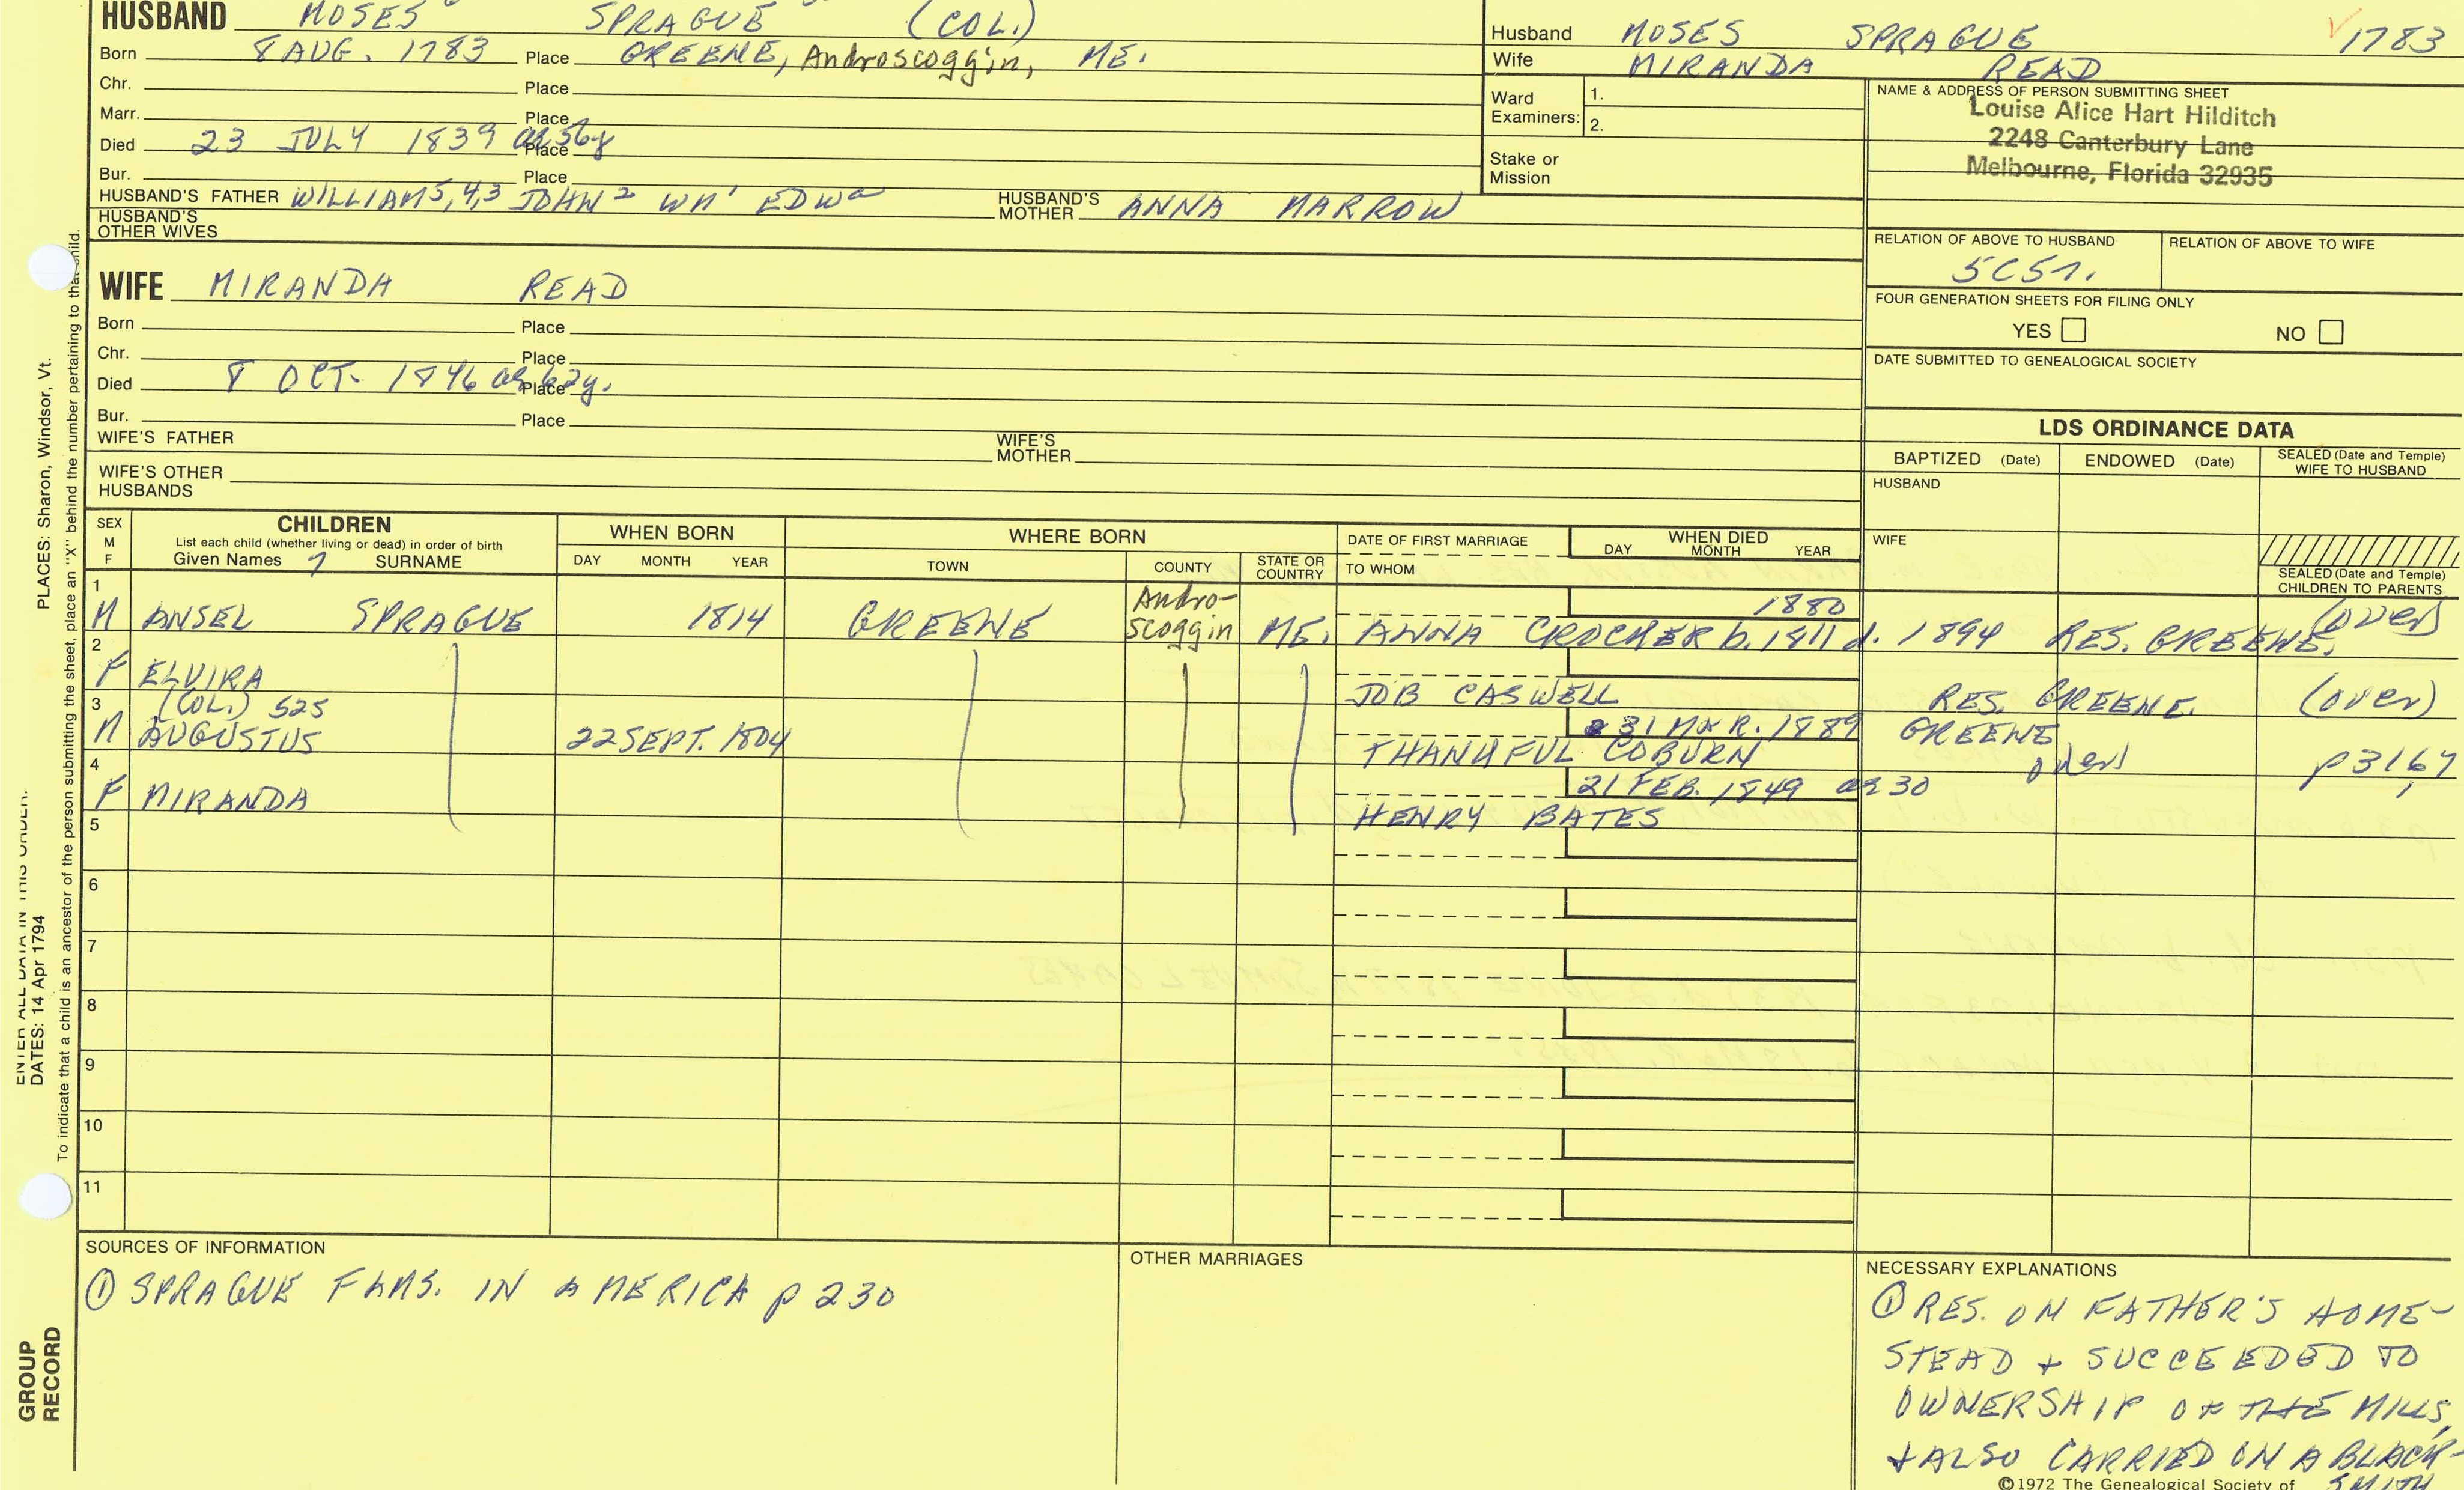 HUSBAND MOSES SPRAGUE (COL.)
Born 8 AUG. 1783 Place GREENE, Androscoggin, ME.
Chr. Place
Marr. Place
Died 23 JULY 1839 ae 56y Place
Bur. Place
HUSBAND'S FATHER WILLIAM 5,4,3 JOHN 2 WM 1 EDW
HUSBAND'S MOTHER ANNA MARROW
HUSBAND'S OTHER WIVES
Husband MOSES SPRAGUE 1783
Wife MIRANDA READ
Ward Examiners: 1.
2.
Stake or Mission
NAME & ADDRESS OF PERSON SUBMITTING SHEET
Louise Alice Hart Hilditch
2248 Canterbury Lane
Melbourne, Florida 32935
RELATION OF ABOVE TO HUSBAND RELATION OF ABOVE TO WIFE
FOUR GENERATION SHEETS FOR FILING ONLY
YES NO
DATE SUBMITTED TO GENEALOGICAL SOCIETY
WIFE MIRANDA READ
Born Place
Chr. Place
Died 8 OCT. 1846 ae 62y. Place
Bur. Place
WIFE'S FATHER WIFE'S MOTHER
WIFE'S OTHER HUSBANDS
LDS ORDINANCE DATA
BAPTIZED (Date) ENDOWED (Date) SEALED (Date and Temple) WIFE TO HUSBAND
HUSBAND
WIFE
SEALED (Date and Temple) CHILDREN TO PARENTS
SEX M F
CHILDREN
List each child (whether living or dead) in order of birth
Given Names 7 SURNAME
WHEN BORN
DAY MONTH YEAR
WHERE BORN
TOWN COUNTY STATE OR COUNTRY
DATE OF FIRST MARRIAGE
TO WHOM
WHEN DIED
DAY MONTH YEAR
1 M ANSEL SPRAGUE 1814 GREENE Andro-scoggin ME. 1880
ANNA CROCKER b. 1811 d. 1894 RES. GREENE. (over)
2 F ELVIRA
JOB CASWELL RES. GREENE. (over)
3 M (COL.) 525 AUGUSTUS 22 SEPT. 1804 31 MAR. 1889 GREENE
THANKFUL COBURN over p 3167
4 F MIRANDA 21 FEB. 1849 ae 30
HENRY BATES
5
6
7
8
9
10
11
SOURCES OF INFORMATION
① SPRAGUE FAMS. IN AMERICA p 230
OTHER MARRIAGES
NECESSARY EXPLANATIONS
① RES. ON FATHER'S HOME-
STEAD + SUCCEEDED TO
OWNERSHIP OF THE MILLS,
+ ALSO CARRIED ON A BLACK-
SMITH
©1972 The Genealogical Society of
PLACES: Sharon, Windsor, Vt.
ENTER ALL DATA IN THIS ORDER:
DATES: 14 Apr 1794
To indicate that a child is an ancestor of the person submitting the sheet, place an "X" behind the number pertaining to that child.
GROUP RECORD